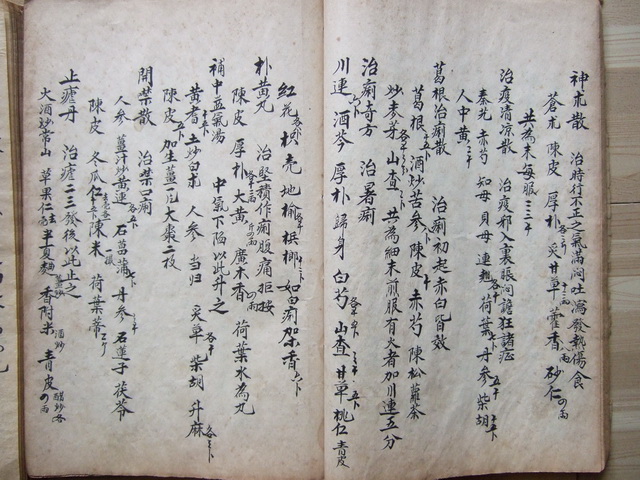 神朮散 治時行不正之氣滿悶吐瀉發熱傷食
蒼朮 陳皮 厚朴 炙甘草 藿香 砂仁
共為末每服三
治疫清凉散 治疫邪入裏脹悶譫狂諸症
秦艽 赤芍 知母 貝母 連翹 荷葉 丹參 柴胡
人中黃
葛根治痢散 治痢初起赤白皆效
葛根 酒炒苦參 陳皮 赤芍 陳松蘿茶
炒麥芽 山查 共為細末煎服有火者加川連五分
治痢奇方 治暑痢
川連 酒芩 厚朴 歸身 白芍 山查 甘草 桃仁 青皮
紅花 枳壳 地榆 檳榔 如白痢 香
朴黃丸 治堅積作痢腹痛拒按
陳皮 厚朴 大黃 廣木香 荷葉水為丸
補中益氣湯 中氣下陷以此升之
黃耆 土炒白朮 人參 当归 炙草 柴胡 升麻
陳皮 加生薑二片大棗二枚
開禁散 治禁口痢
人參 薑汁炒黃連 石菖蒲 丹參 石蓮子 茯苓
陳皮 冬瓜仁 陳米 荷葉蒂
止瘧丹 治瘧二三發後以此止之
火酒炒常山 草果仁 半夏麯 香附米 青皮